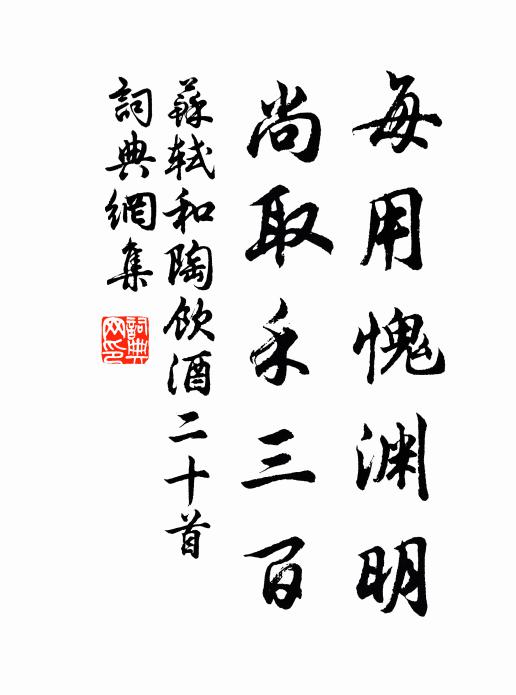 每用愧渊明
尚取禾三百
蘇軾和陶飲酒二十首
詞典網集
詞典网印